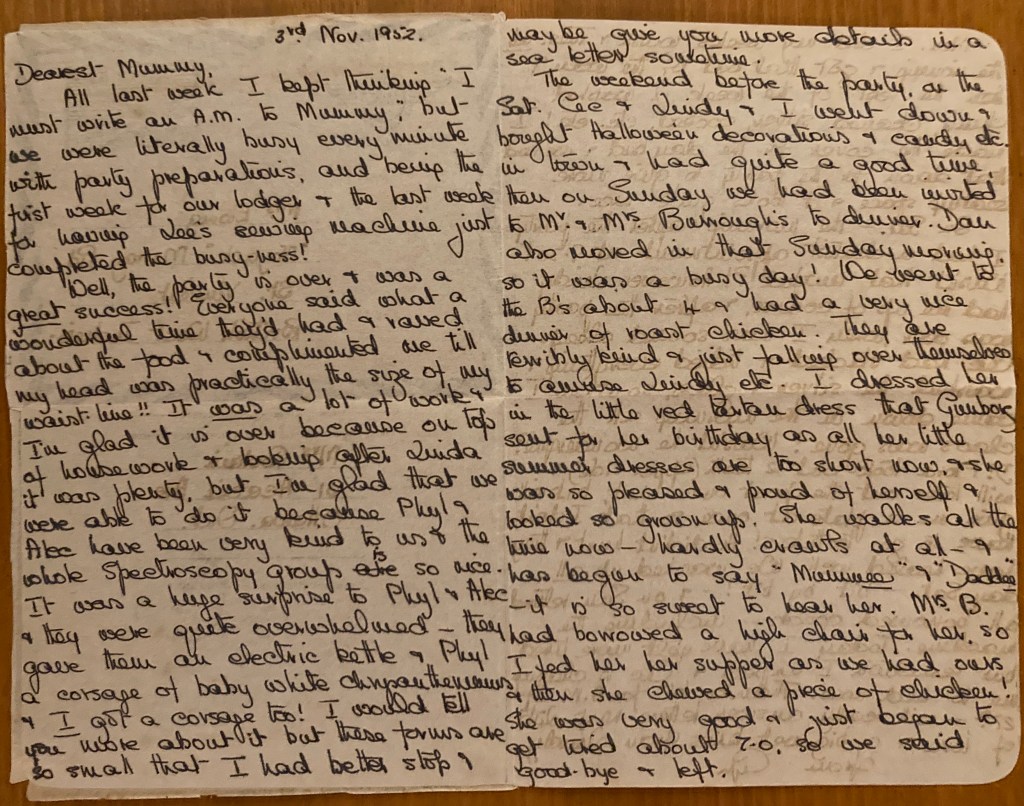 3rd Nov. 1952.
Dearest Mummy,
All last week I kept thinking "I
must write an A.M. to Mummy", but
we were literally busy every minute
with party preparations, and being the
first week for our lodger & the last week
for having Lee's sewing machine just
completed the busy-ness!
Well, the party is over & was a
great success!! Everyone said what a
wonderful time they'd had & raved
about the food & complimented me till
my head was practically the size of my
waist-line!! It was a lot of work &
I'm glad it is over because on top
of housework & looking after Linda
it was plenty, but I'm glad that we
were able to do it because Phyl &
Alec have been very kind to us & the
whole Spectroscopy group are is so nice.
It was a huge surprise to Phyl & Alec
& they were quite overwhelmed – they
gave them an electric kettle & Phyl
a corsage of baby white chrysanthemums
& I got a corsage too! I would tell
you more about it but these forms are
so small that I had better stop &
maybe give you more details in a
sea letter sometime.
The weekend before the party, on the
Sat. Cec & Lindy & I went down &
bought Halloween decorations & candy etc.
in town & had quite a good time,
then on Sunday we had been invited
to Mr. & Mrs. Burroughs to dinner. Dan
also moved in that Sunday morning.
so it was a busy day! We went to
the B's about 4 & had a very nice
dinner of roast chicken. They are
terribly kind & just falling over themselves
to amuse Lindy etc. I dressed her
in the little red tartan dress that Gunborg
sent for her birthday as all her little
summer dresses are too short now, & she
was so pleased & proud of herself &
looked so grown up. She walks all the
time now – hardly crawls at all – &
has begun to say "Mummee" & "Daddee"
– it is so sweet to hear her. Mrs. B.
had borrowed a high chair for her, so
I fed her her supper as we had ours
& then she chewed a piece of chicken!
She was very good & just began to
get tired about 7-0, so we said
good-bye & left.